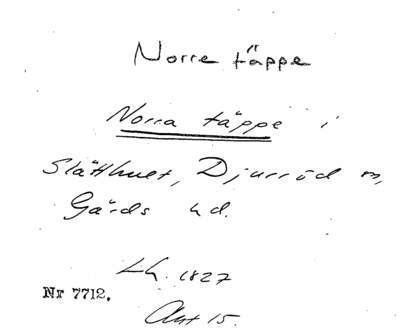 Norre täppe
Norra täppe i
Slätthult, Djurröd sn,
Gärds hd.
Lh. 1827
Nr 7712.
Akt 15.